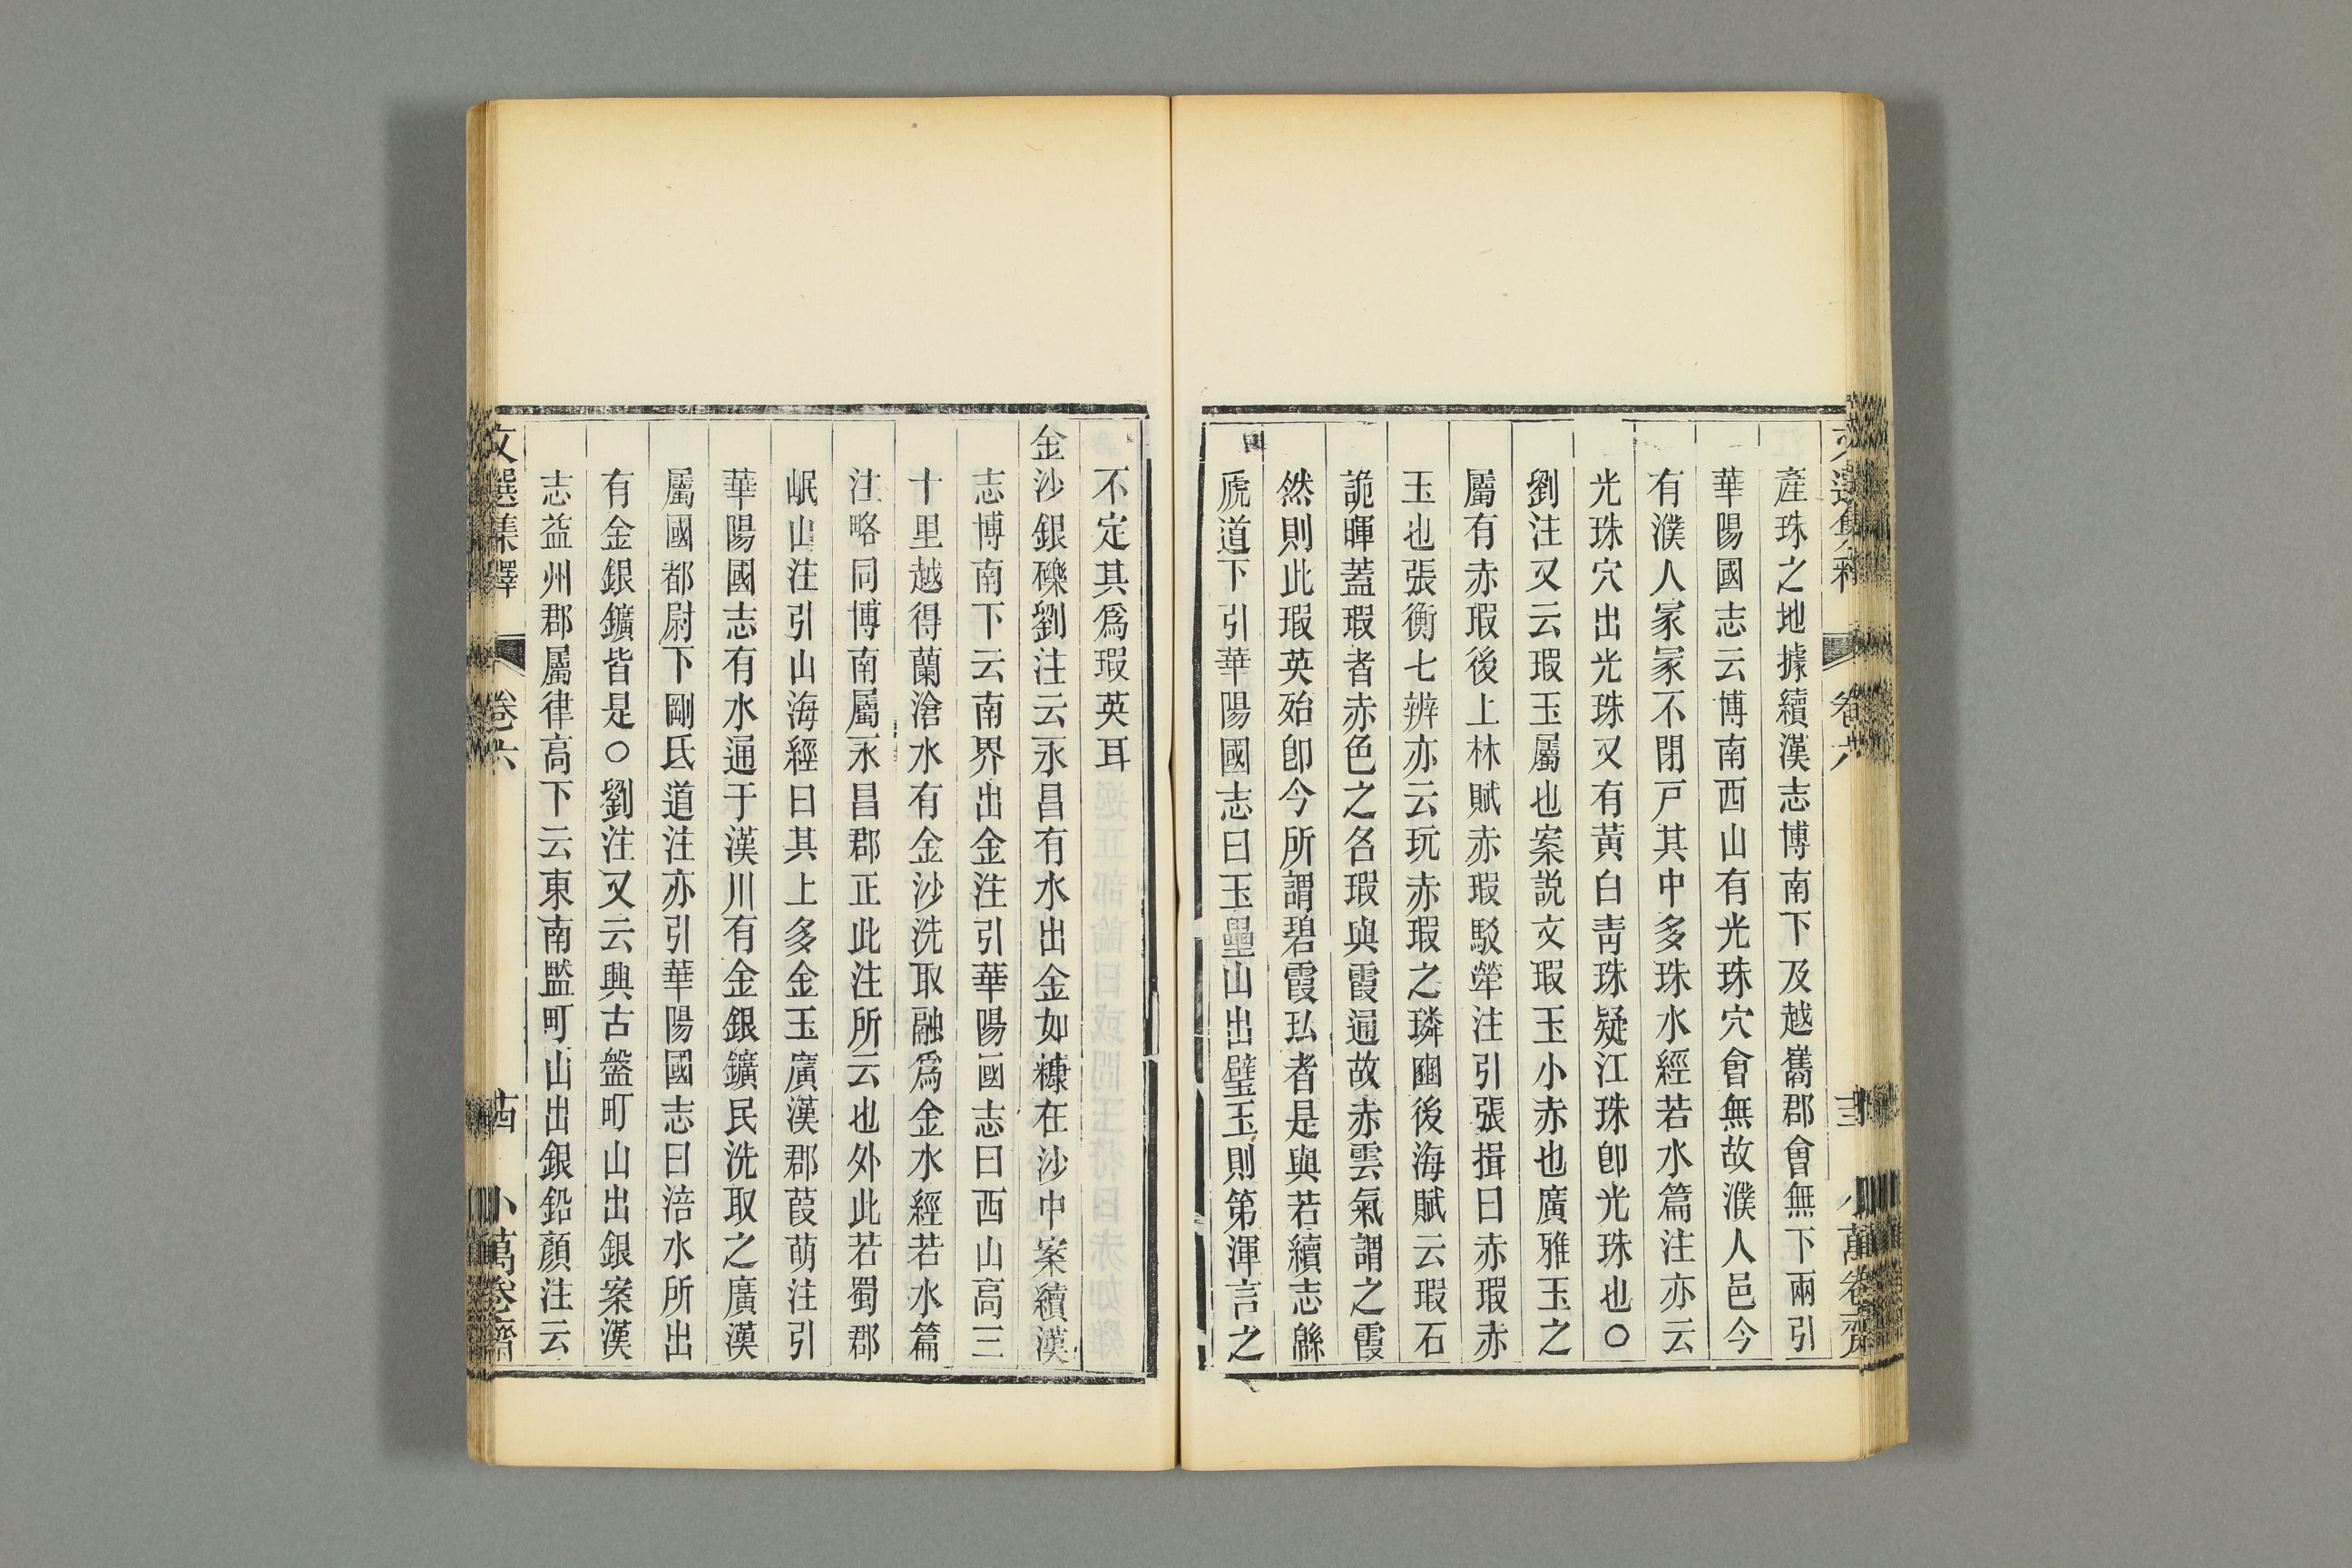 產珠之地據續漢志博南下及越巂郡會無下兩引
華陽國志云博南西山有光珠穴會無故濮人邑今
有濮人冢冢不閉戸其中多珠水經若水篇注亦云
光珠穴出光珠又有黃白靑珠疑江珠卽光珠也○
劉注又云瑕玉屬也案說文瑕玉小赤也廣雅玉之
屬有赤瑕後上林賦赤瑕駁犖注引張揖曰赤瑕赤
玉也張衡七辨亦云玩赤瑕之璘豳後海賦云瑕石
詭暉蓋瑕者赤色之名瑕與霞通故赤雲氣謂之霞
然則此瑕英殆卽今所謂碧霞玜者是與若續志緜
虒道下引華陽國志曰玉壘山出璧玉則第渾言之
不定其爲瑕英耳
金沙銀礫劉注云永昌有水出金如糠在沙中案續漢
志博南下云南界出金注引華陽國志曰西山高三
十里越得蘭滄水有金沙洗取融爲金水經若水篇
注略同博南屬永昌郡正此注所云也外此若蜀郡
岷山注引山海經曰其上多金玉廣漢郡葭萌注引
華陽國志有水通于漢川有金銀鑛民洗取之廣漢
屬國都尉下剛氐道注亦引華陽國志曰涪水所出
有金銀鑛皆是○劉注又云興古盤町山出銀案漢
志益州郡屬律高下云東南䀋町山出銀鉛顏注云
文選集釋 卷六 古 小萬卷齋